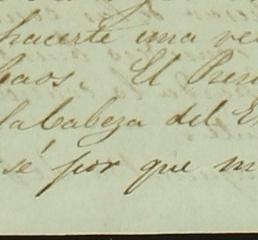 hacerte una ve
El
la Cabeza del E
sé por que m